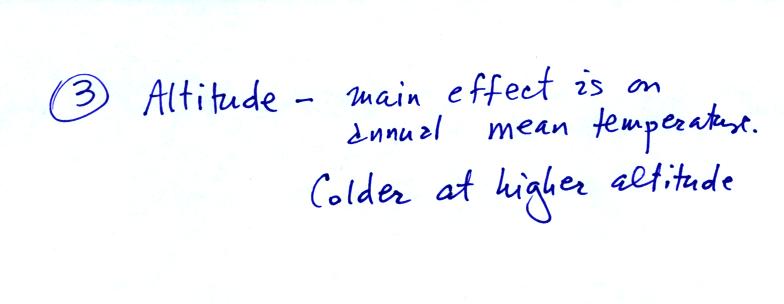 ③ Altitude - main effect is on
annual mean temperature.
Colder at higher altitude